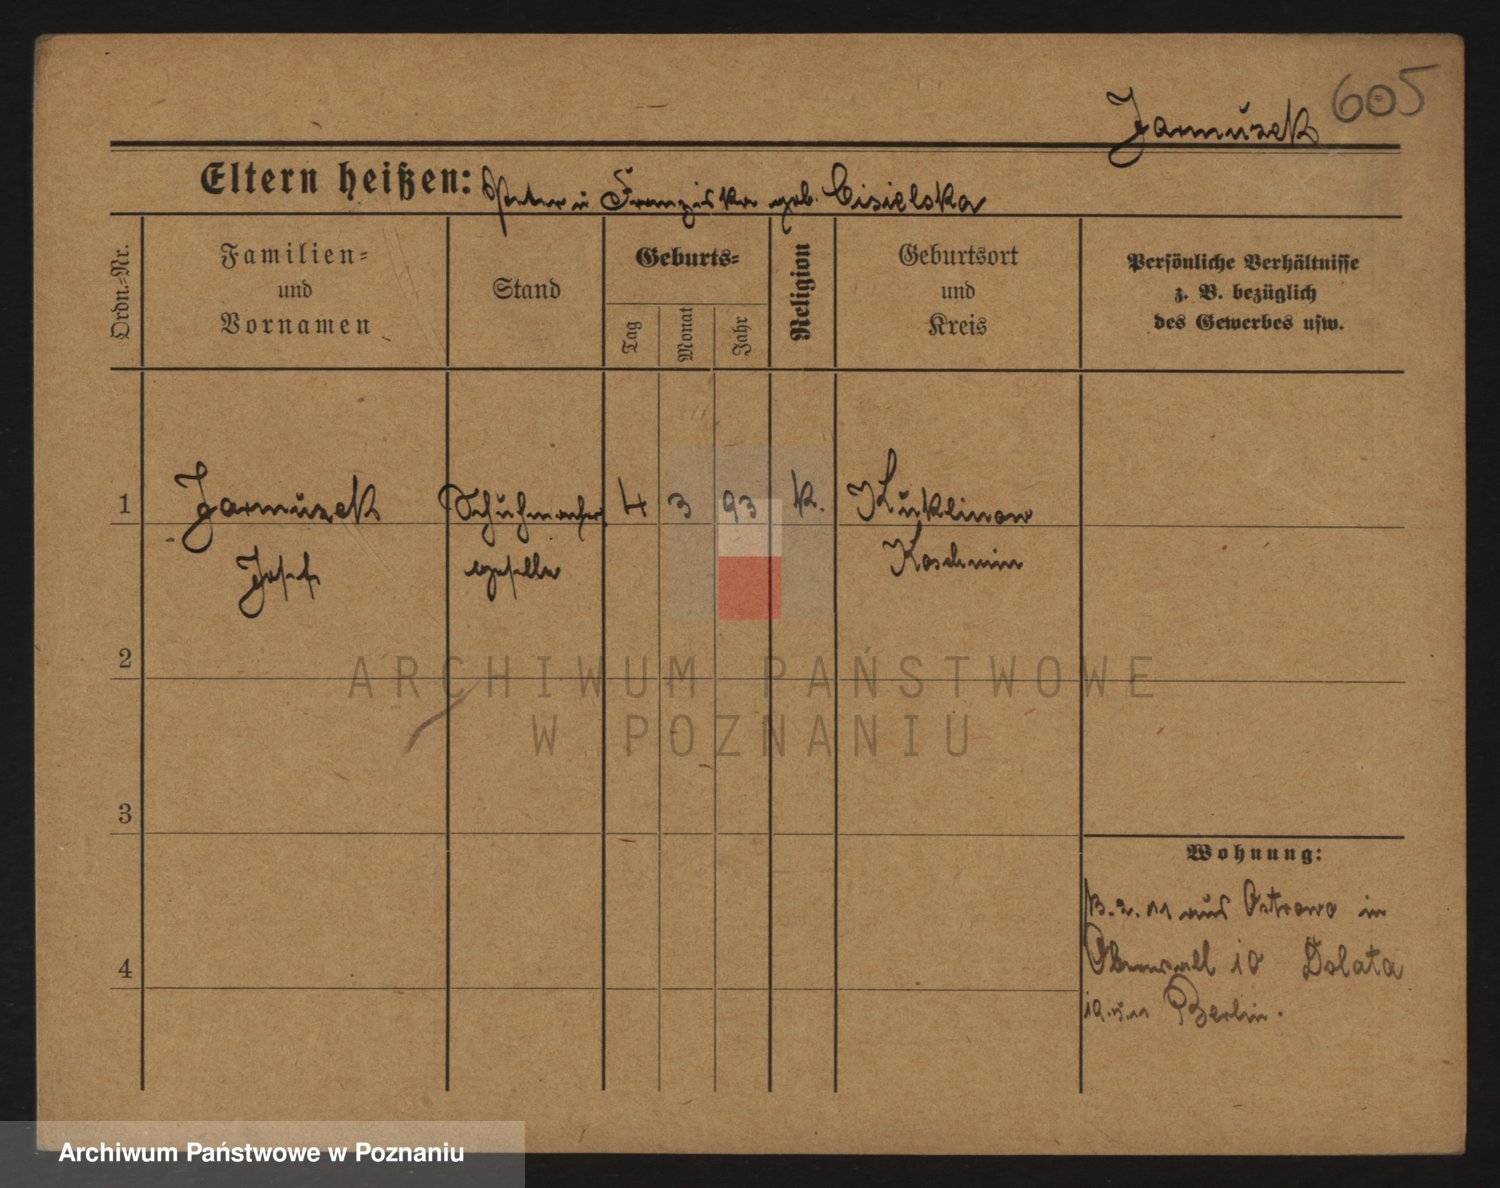 605
Jarmuzek
Eltern heißen: Peter u Franziska geb. Cisielska
Ordn.-Nr.
Familien-
und
Vornamen
Stand
Geburts-
Tag
Monat
Jahr
Religion
Geburtsort
und
Kreis
Persönliche Verhältnisse
z. B. bezüglich
des Gewerbes usw.
1 Jarmuzek Schuhmacher 4 3 93 k. Kuklinow
Josef geselle Koschmin
2
ARCHIWUM PAŃSTWOWE
W POZNANIU
3
Wohnung:
2. 11 aus Ostrowo in
4
10 Dolata
11 Berlin.
Archiwum Państwowe w Poznaniu